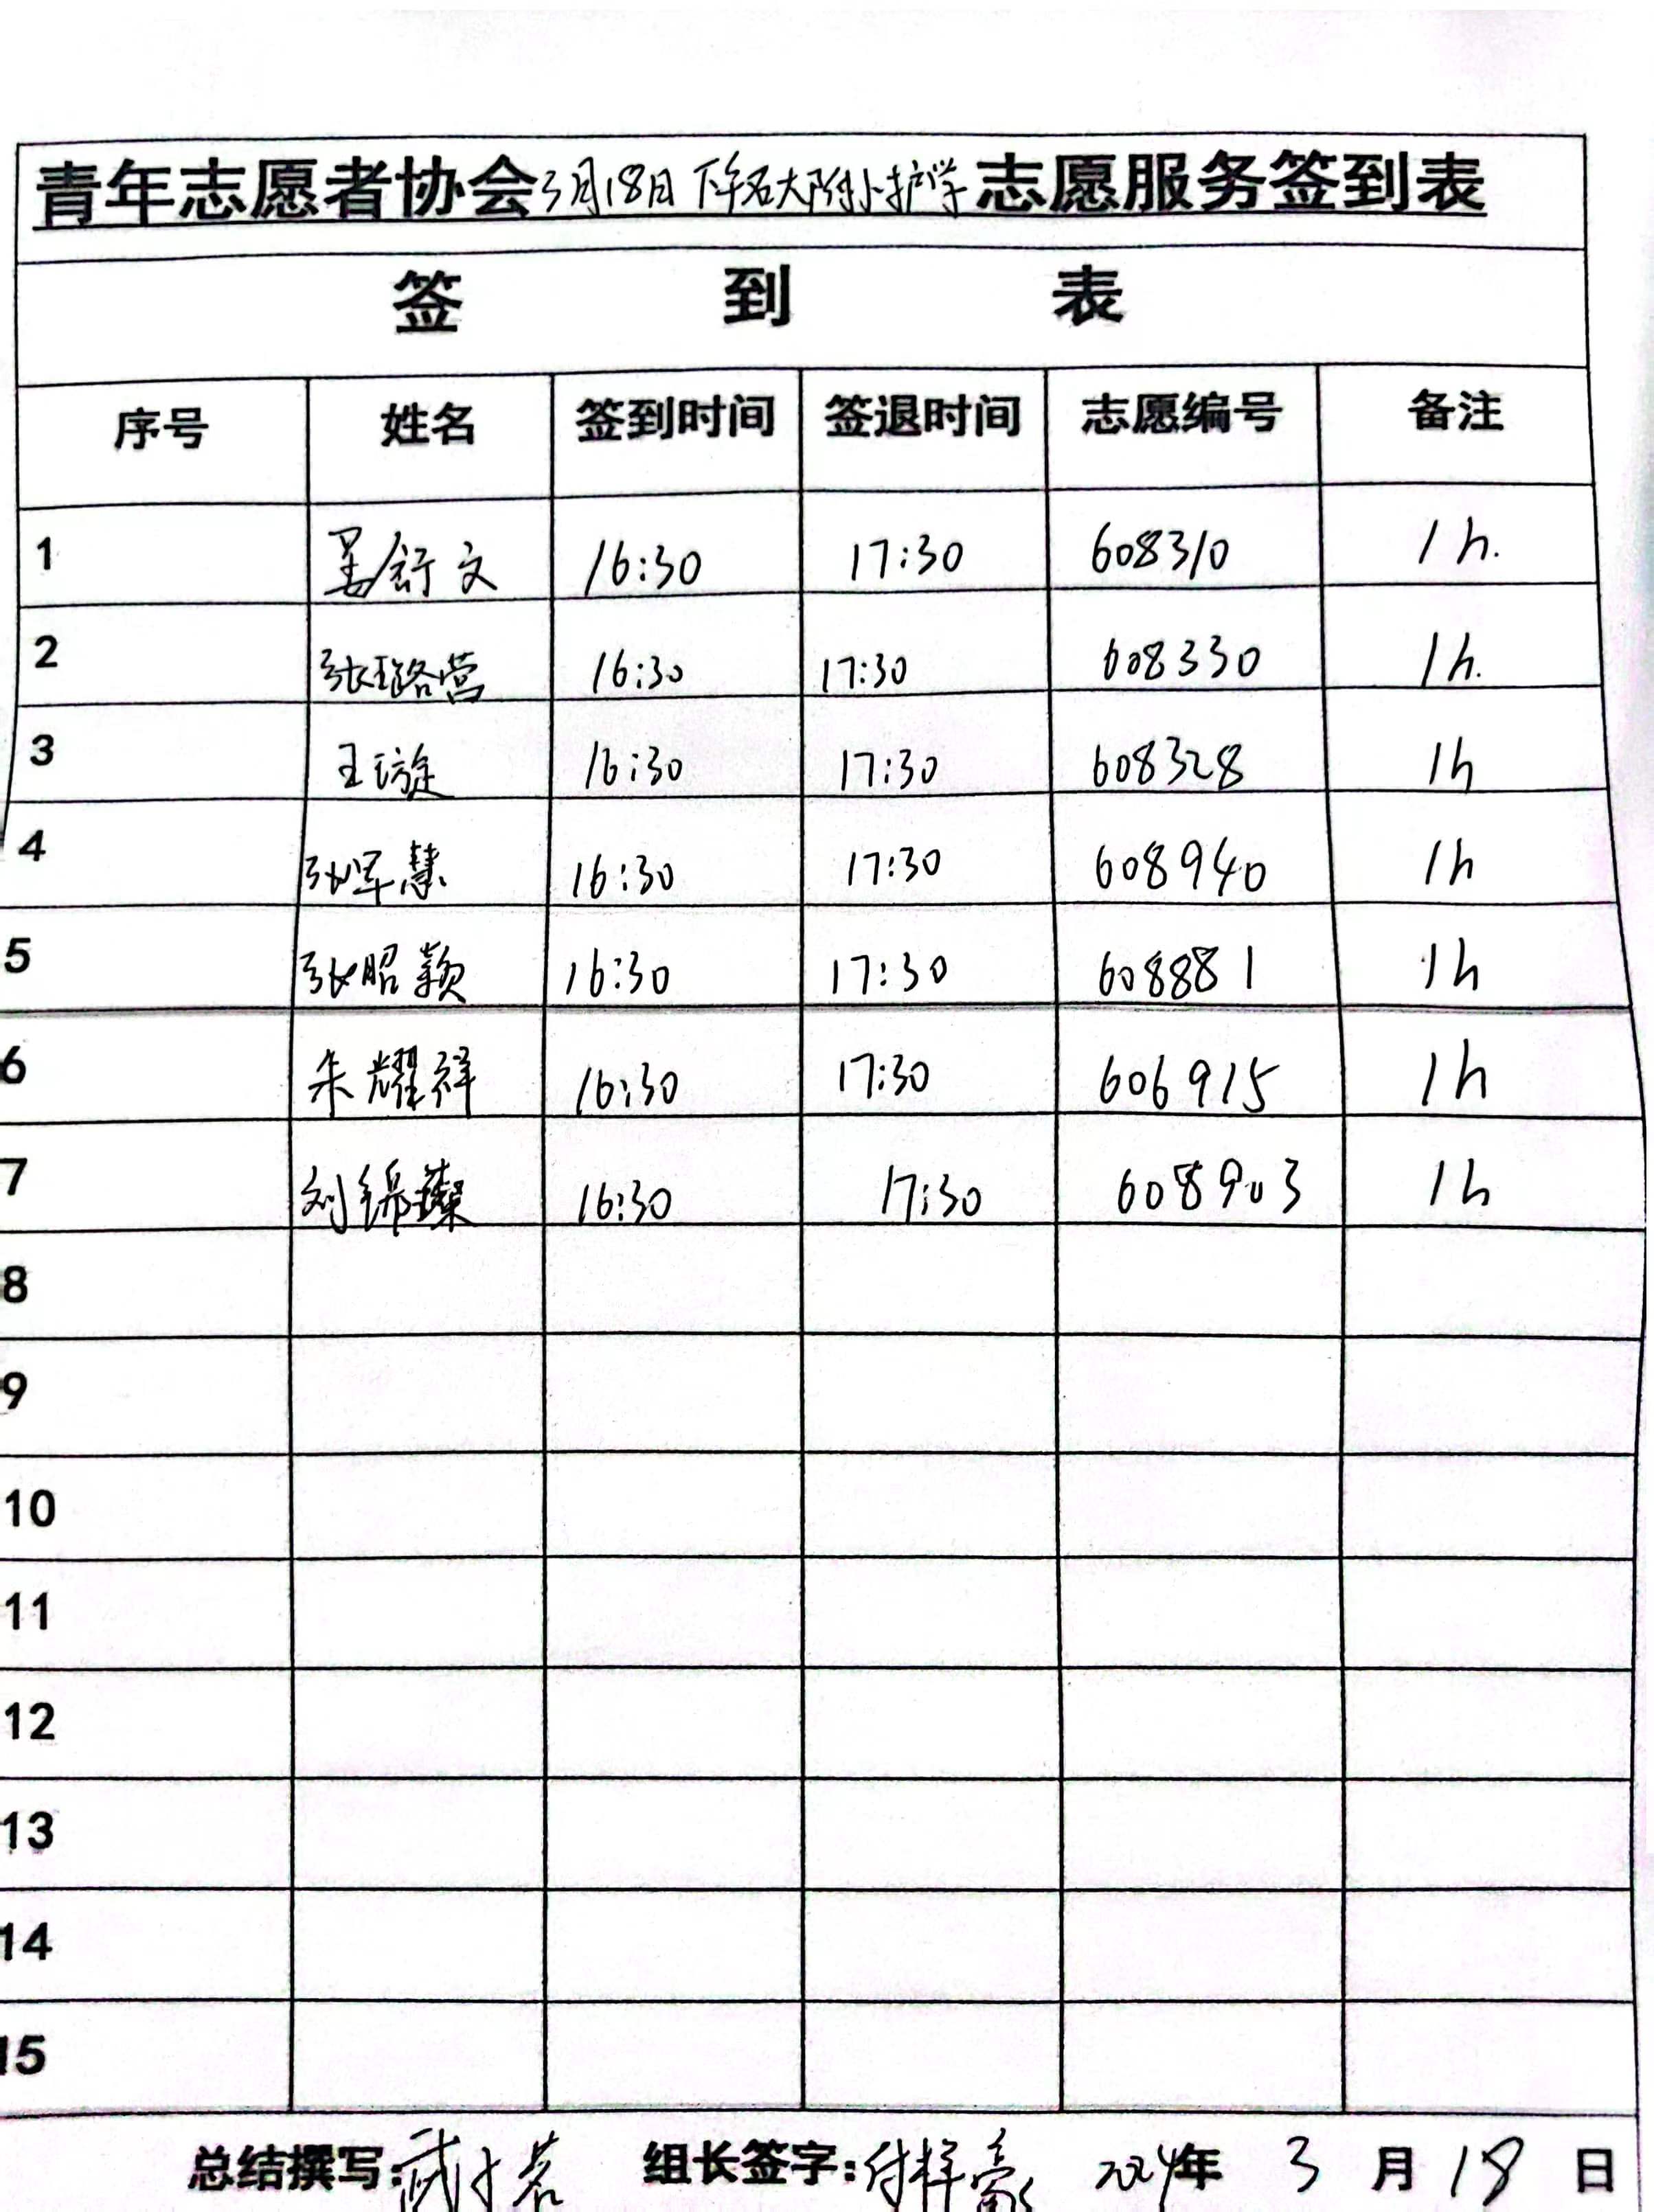 青年志愿者协会3月18日下午石大附小护学志愿服务签到表
签 到 表
序号 姓名 签到时间 签退时间 志愿编号 备注
1 姜舒文 16:30 17:30 608310 1h.
2 张璐营 16:30 17:30 608330 1h.
3 王璇 16:30 17:30 608328 1h
4 张军慧 16:30 17:30 608940 1h
5 张昭颖 16:30 17:30 608881 1h
6 朱耀祥 16:30 17:30 606915 1h
7 刘锦 16:30 17:30 608903 1h
8
9
10
11
12
13
14
15
总结撰写: 武 若 组长签字: 付梓豪 2024年 3 月 18 日